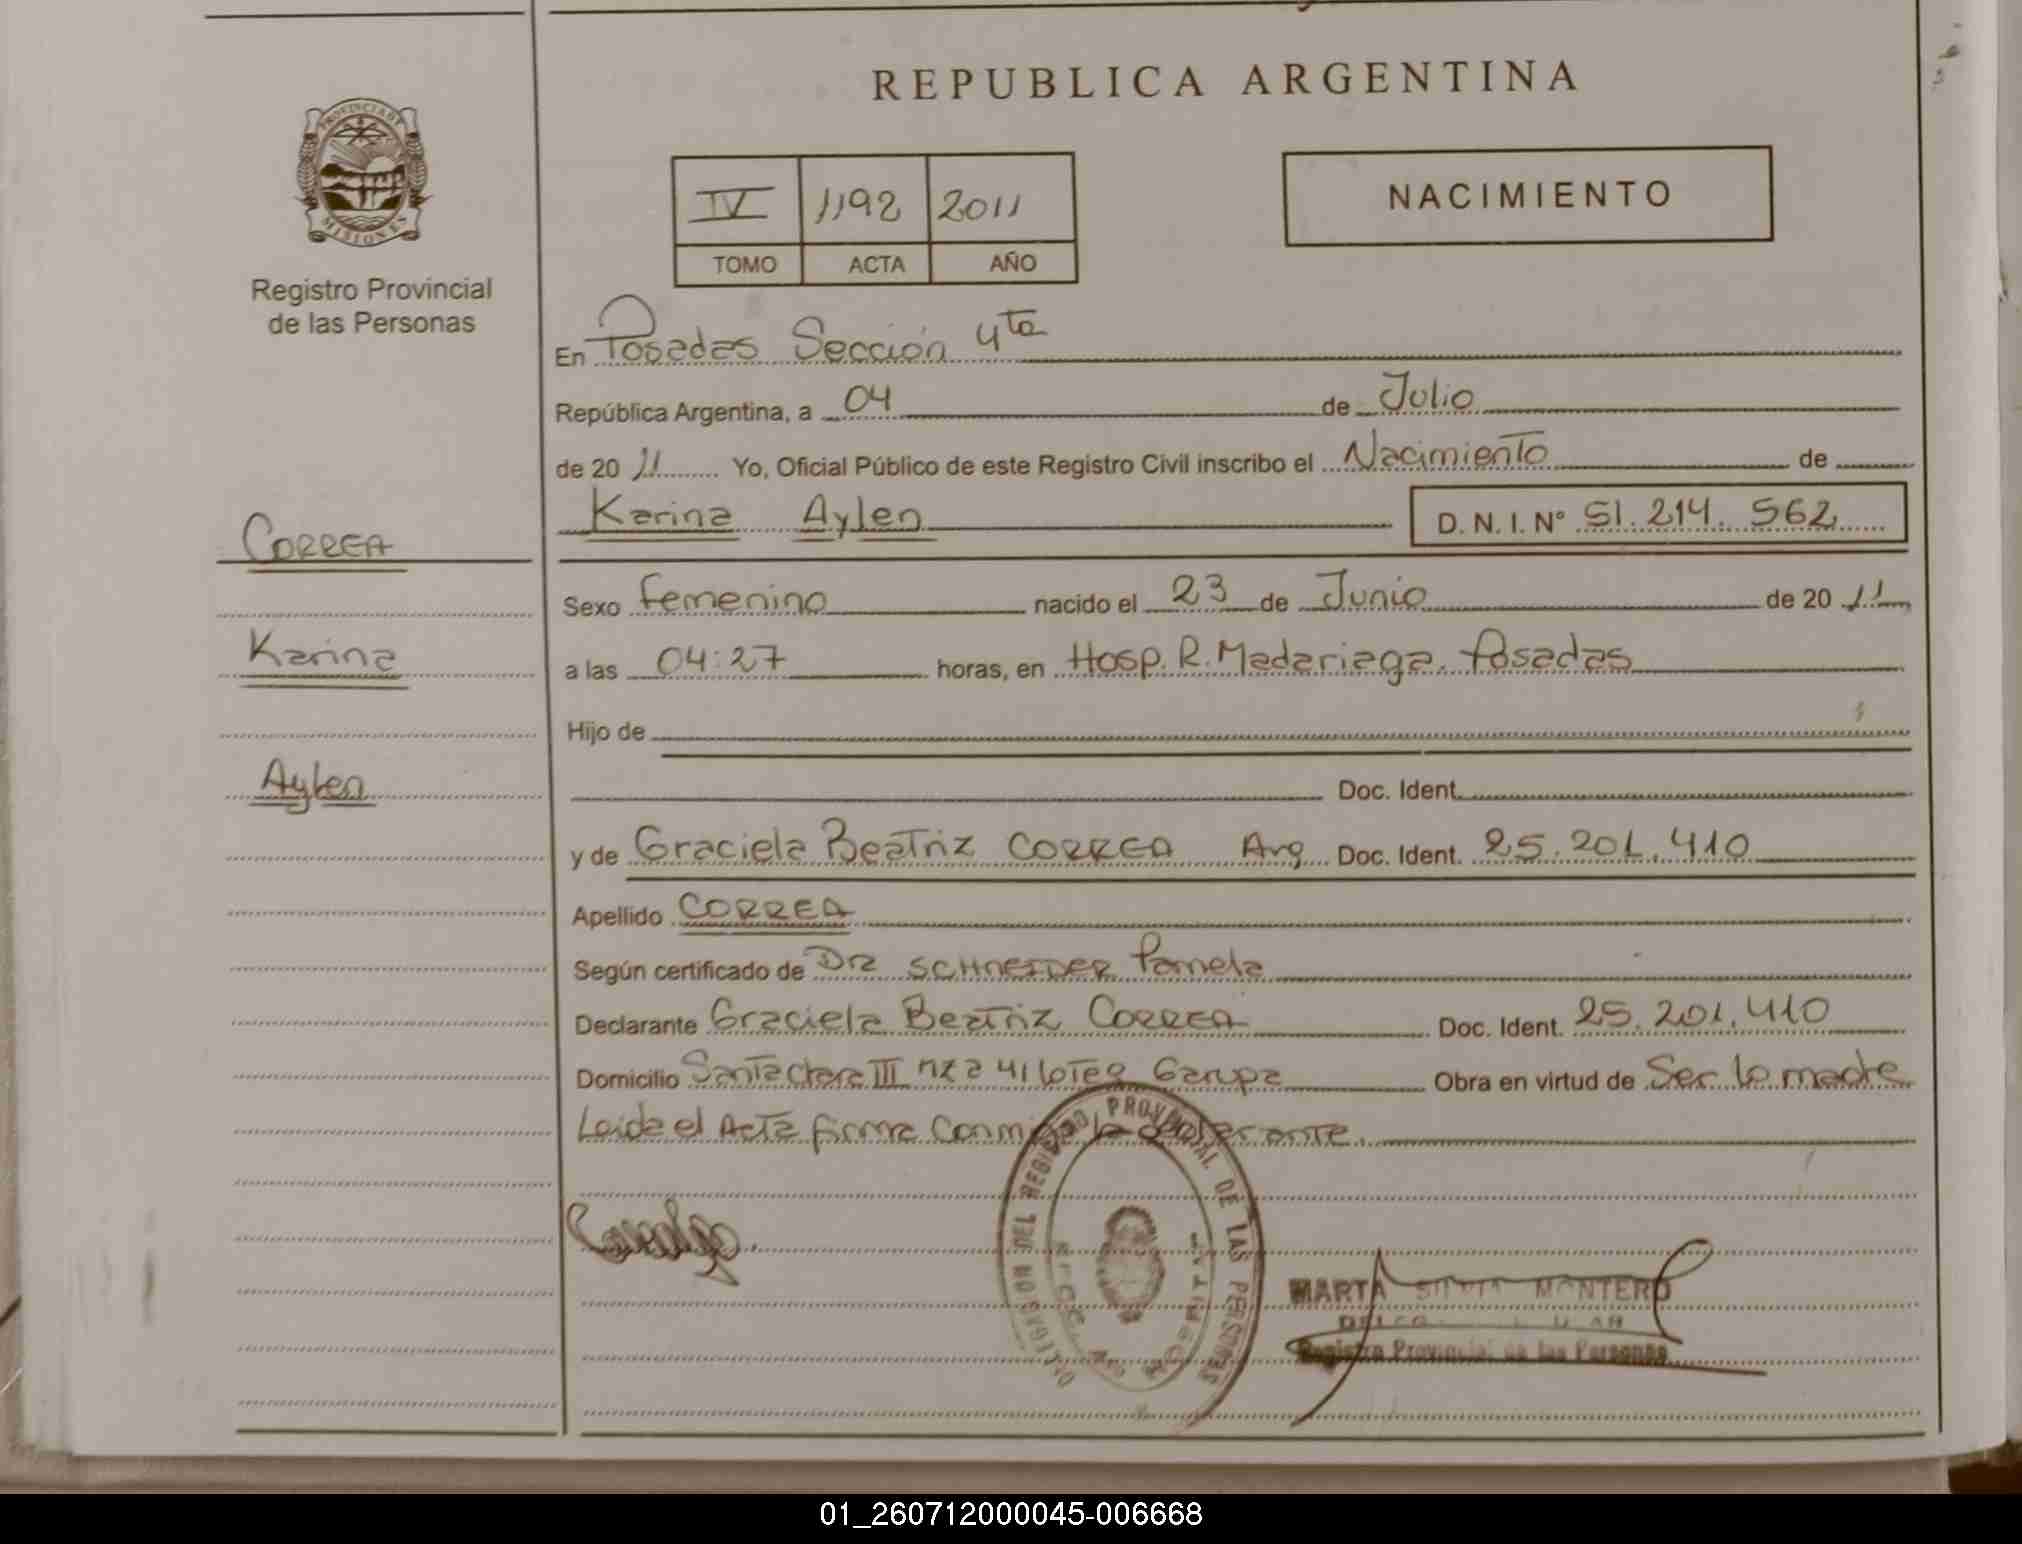 REPUBLICA ARGENTINA
PROVINCIA D
MISIONES
Registro Provincial
de las Personas
IV 1192 2011
TOMO ACTA AÑO
NACIMIENTO
En Posadas Sección 4ta
República Argentina, a 04 de Julio
de 20 11 Yo, Oficial Público de este Registro Civil inscribo el Nacimiento de
Karina Aylen D. N. I. Nº 51.214.562
CORREA
Karina
Aylen
Sexo femenino nacido el 23 de Junio de 20 11
a las 04:27 horas, en Hosp. R. Madariaga. Posadas
Hijo de
Doc. Ident.
y de Graciela Beatriz CORREA Arg Doc. Ident. 25.201.410
Apellido CORREA
Según certificado de Dra SCHNEIDER Pamela
Declarante Graciela Beatriz CORREA Doc. Ident. 25.201.410
Domicilio Santa Clara III mza 41 lote 9 Garupa Obra en virtud de Ser la madre
Leida el Acta firma Conmigo la declarante.
REGISTRO PROVINCIAL DE LAS PERSONAS
MARTA SILVIA MONTERO
Registro Provincial de las Personas
01_260712000045-006668